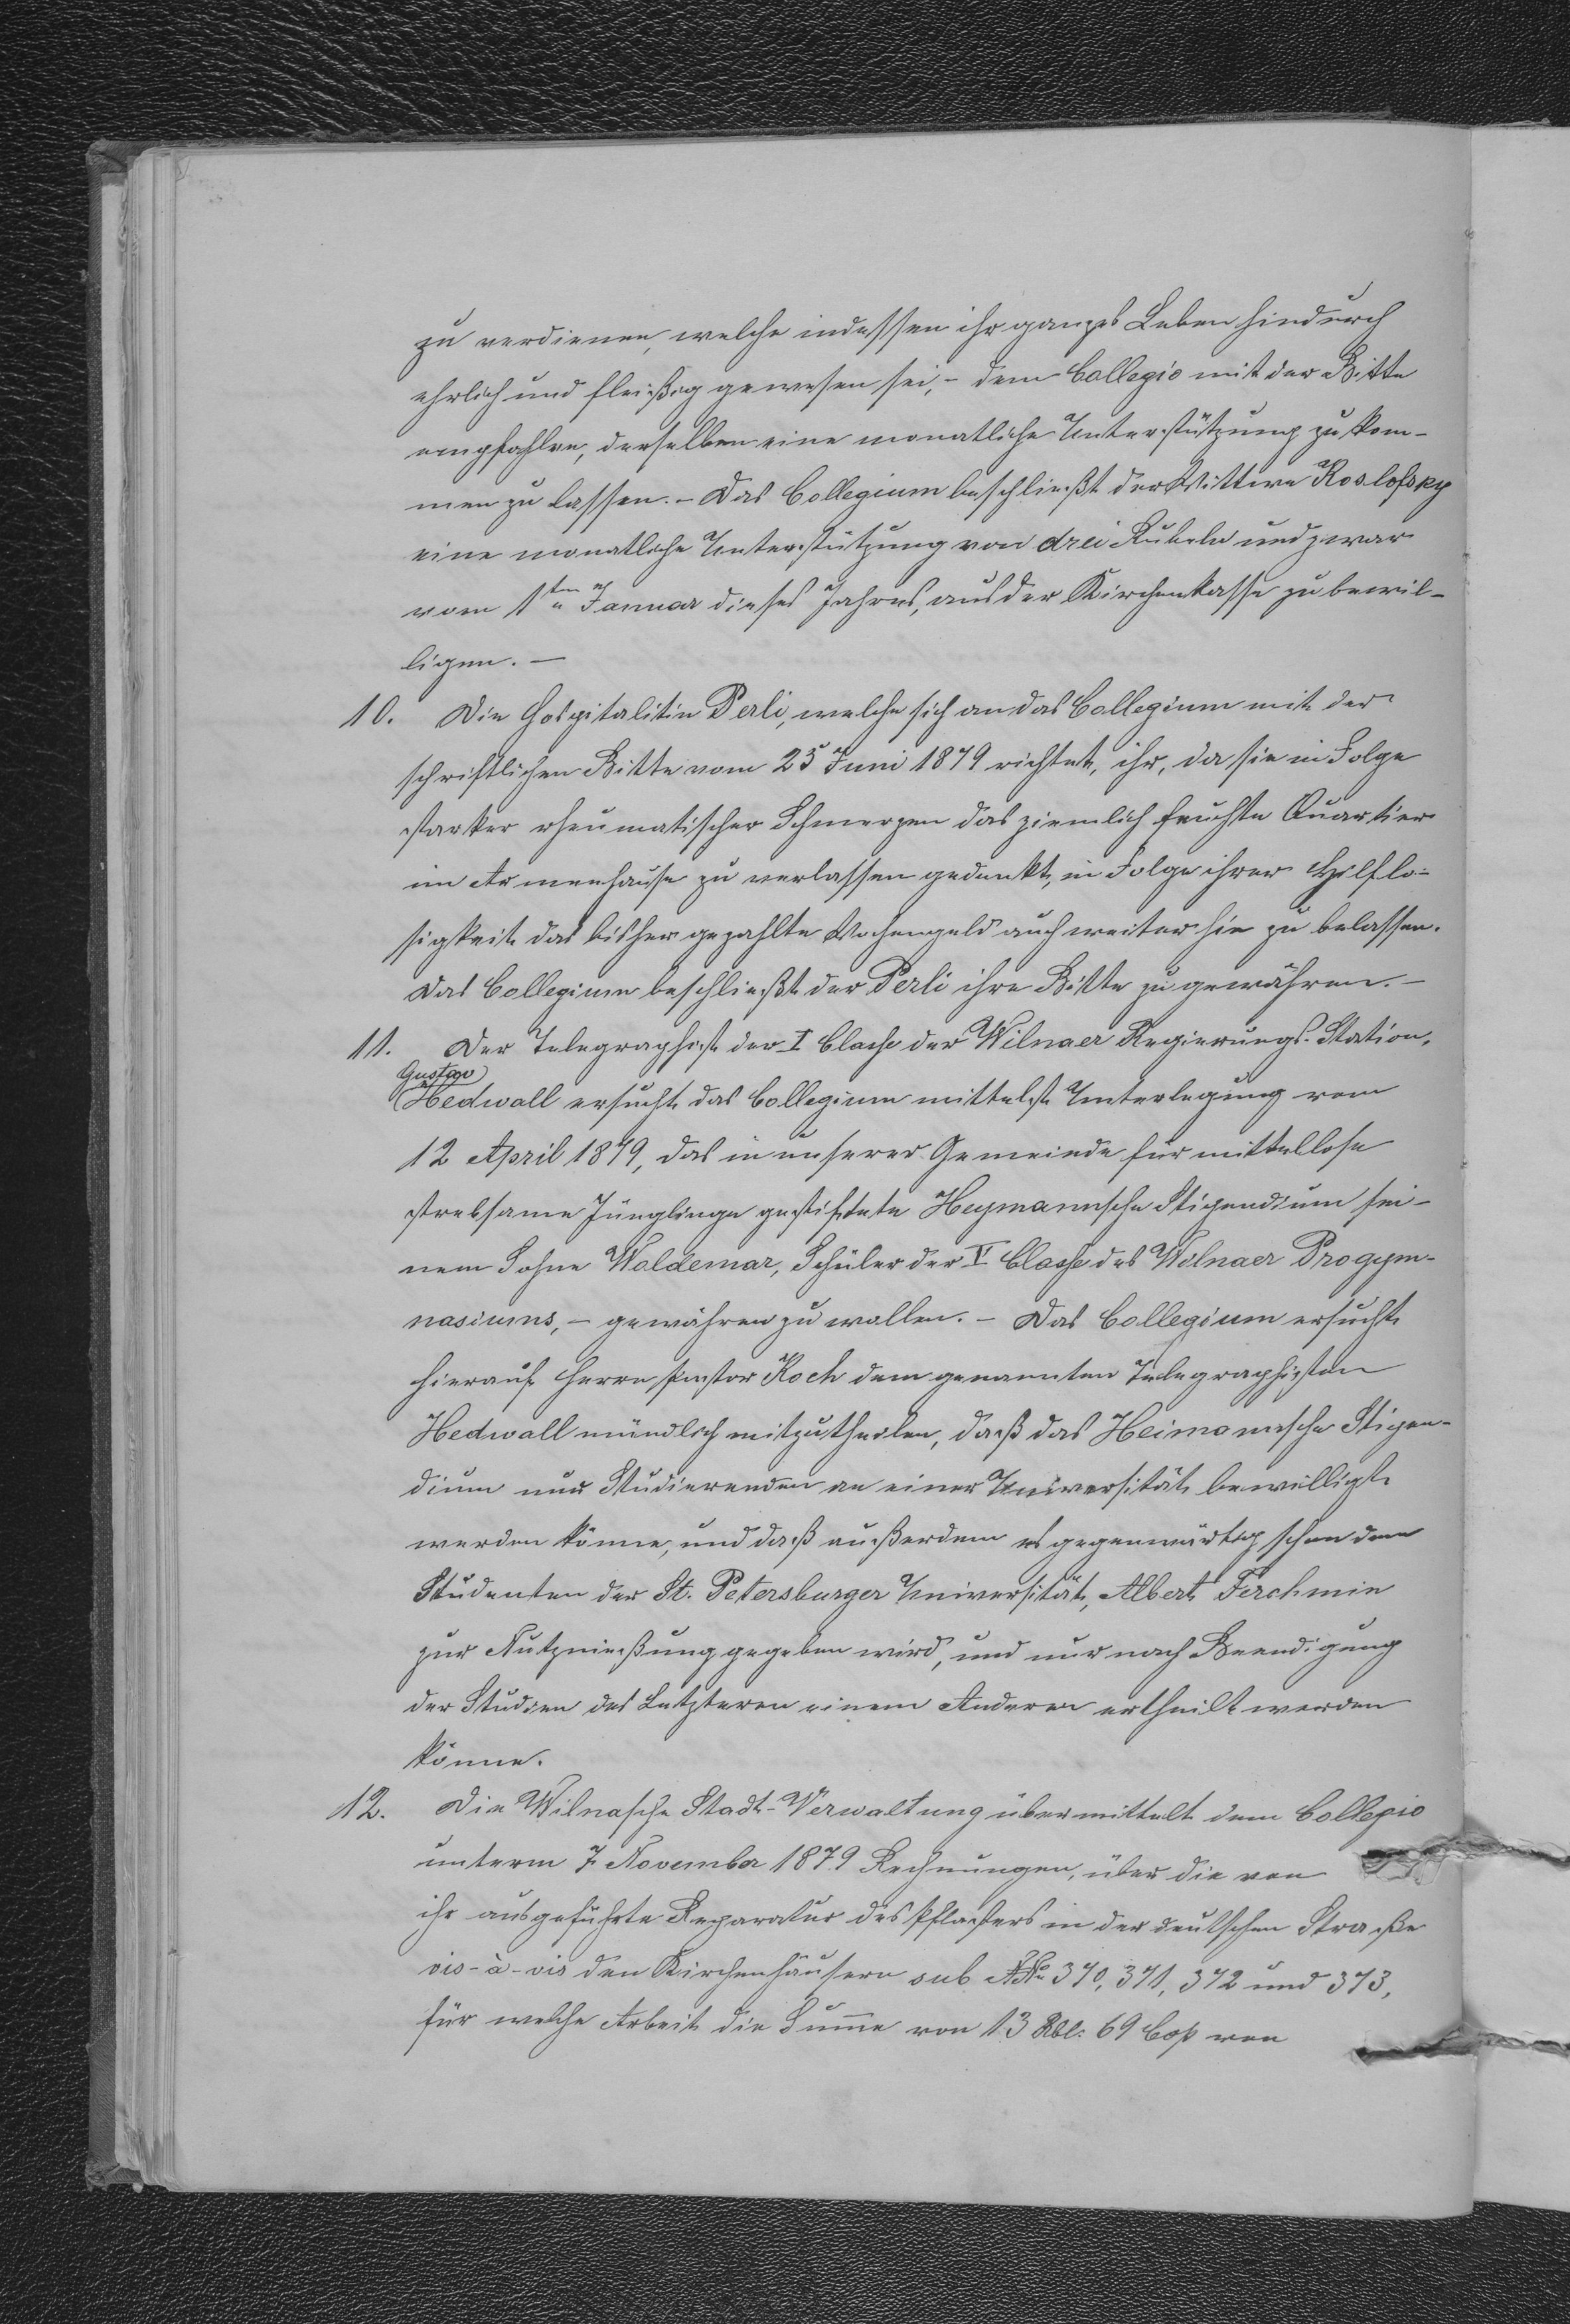 zu verdienen, welche indessen ihr ganzes Leben hindurch
ehrlich und fleißig gewesen sei, – dem Collegio mit der Bitte
empfohlen, derselben eine monatliche Unterstützung zu kom-
men zu lassen. – Das Collegium beschließt der Wittwe Koslofsky
eine monatliche Unterstützung von drei Rubeln und zwar
vom 1ten Januar dieses Jahres, aus der Kirchenkasse zu bewil-
ligen. –
10. Die Hospitalitin Perli, welche sich an das Collegium mit der
schriftlichen Bitte vom 25 Juni 1879 richtet, ihr, da sie in Folge
starker rheumatischer Schmerzen das ziemlich feuchte Quartier
im Armenhause zu verlassen gedenkt, in Folge ihrer Hilflo-
sigkeit das bisher gezahlte Wochengeld auch weiter hin zu belassen.
Das Collegium beschließt der Perli ihre Bitte zu gewähren. –
11. Der Telegraphist der I Classe der Wilnaer Regierungs-Station,
Gustav
Hedwall ersucht das Collegium mittelst Unterlegung vom
12 April 1879, das in unserer Gemeinde für mittellose
strebsame Jünglinge gestiftete Heymannsche Stipendium sei-
nem Sohne Woldemar, Schüler der V Classe des Wilnaer Progym-
nasiums, – gewähren zu wollen. – Das Collegium ersucht
hierauf Herrn Pastor Koch dem genannten Telegraphisten
Hedwall mündlich mitzutheilen, daß das Heimannsche Stipen-
dium nur Studierenden an einer Universität bewilligt
werden könne, und daß außerdem es gegenwärtig schon dem
Studenten der St. Petersburger Universität, Albert Ferchmin
zur Nutznießung gegeben wird, und nur nach Beendigung
der Studien des Letzteren einem Anderen ertheilt werden
könne.
12. Die Wilnasche Stadt-Verwaltung übermittelt dem Collegio
unterm 7 November 1879 Rechnungen, über die von
ihr ausgeführte Reparatur des Pflasters in der deutschen Straße
vis-à-vis den Kirchenhäusern sub NNo 370, 371, 372 und 373,
für welche Arbeit die Summe von 13 Rbl. 69 Cop von